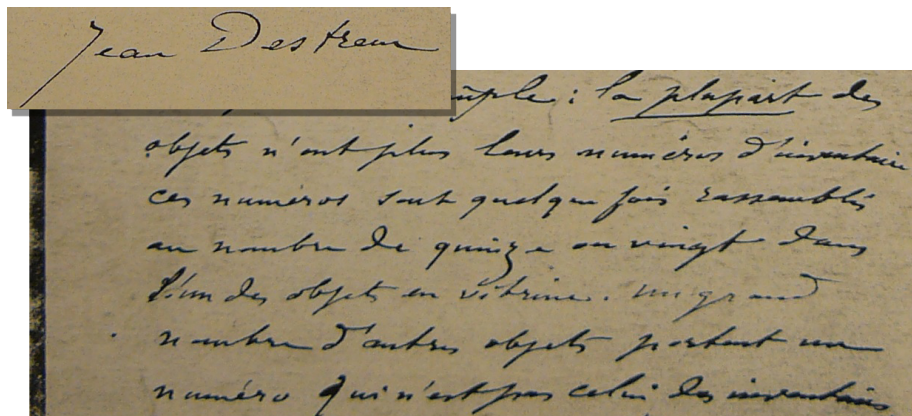 Jean Destrem
simple : la plupart des
objets n'ont plus leurs numéros d'inventaire
ces numéros sont quelque fois rassemblés
au nombre de quinze ou vingt dans
l'un des objets en vitrine. un grand
nombre d'autres objets portent un
numéro qui n'est pas celui des inventaires